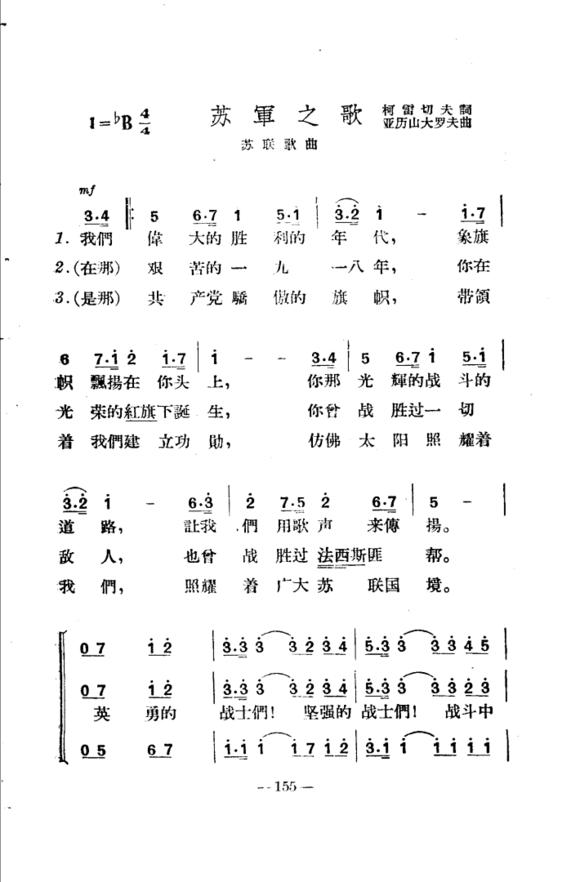 1=♭B 4/4
苏軍之歌
柯雷切夫詞
亚历山大罗夫曲
苏联歌曲
mf
3·4 ‖: 5 6·7 1 5·1 | 3·2 1 – 1·7 |
1. 我們 偉 大的 胜 利的 年 代， 象旗
2.(在那) 艰 苦的 一 九 一八 年， 你在
3.(是那) 共 产党 驕 傲的 旗 帜， 带領
6 7·1 2 1·7 | 1 – – 3·4 | 5 6·7 1 5·1 |
帜 飄揚 在 你头 上， 你那 光 輝的 战 斗的
光 荣的 紅旗 下誕 生， 你曾 战 胜过 一 切
着 我們 建 立功 勛， 仿佛 太 阳 照 耀着
3·2 1 – 6·3 | 2 7·5 2 6·7 | 5 – |
道 路， 註我 們 用歌 声 来傳 揚。
敌 人， 也曾 战 胜过 法西斯 匪 帮。
我 們， 照耀 着 广大 苏 联国 境。
0 7 1 2 | 3·3 3 3 2 3 4 | 5·3 3 3 3 4 5 |
0 7 1 2 | 3·3 3 3 2 3 4 | 5·3 3 3 3 2 3 |
英 勇的 战士們！ 坚强的 战士們！ 战斗中
0 5 6 7 | 1·1 1 1 7 1 2 | 3·1 1 1 1 1 1 |
--155—